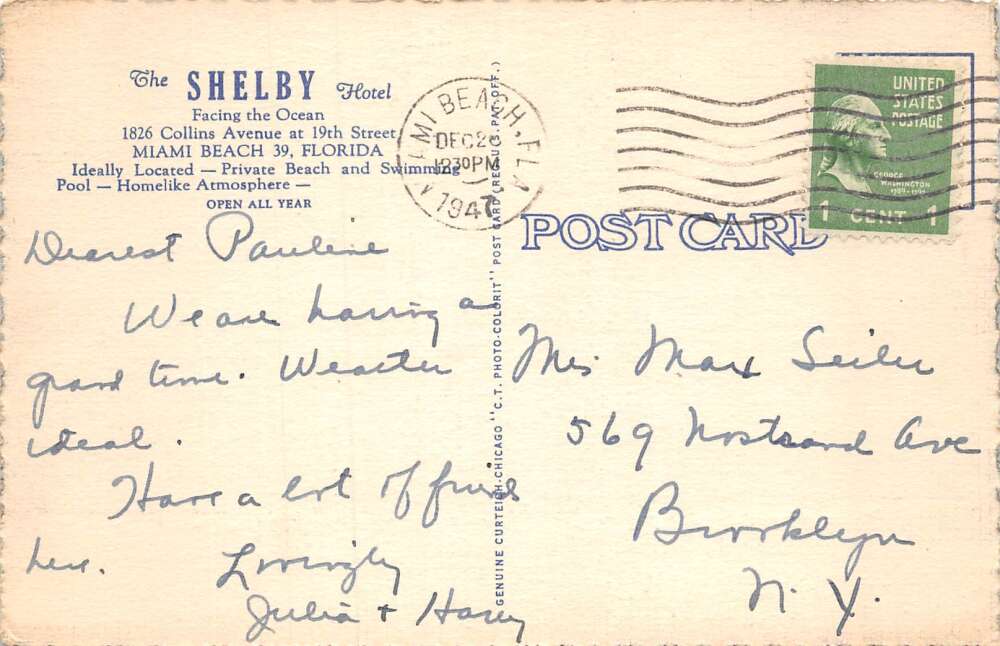 The SHELBY Hotel
Facing the Ocean
1826 Collins Avenue at 19th Street
MIAMI BEACH 39, FLORIDA
Ideally Located — Private Beach and Swimming
Pool — Homelike Atmosphere —
OPEN ALL YEAR
MI BEACH, FLA
DEC 26
12 30 PM
1947
UNITED
STATES
POSTAGE
GEORGE
WASHINGTON
1 CENT 1
POST CARD
GENUINE CURTEICH-CHICAGO "C.T. PHOTO-COLORIT" POST CARD (REG. U.S. PAT. OFF.)
Dearest Pauline
We are having a
grand time. Weather
ideal.
Have a lot of friends
here.
Lovingly
Julia + Harry
Mrs Max Seiler
569 Nostrand Ave
Brooklyn
N. Y.